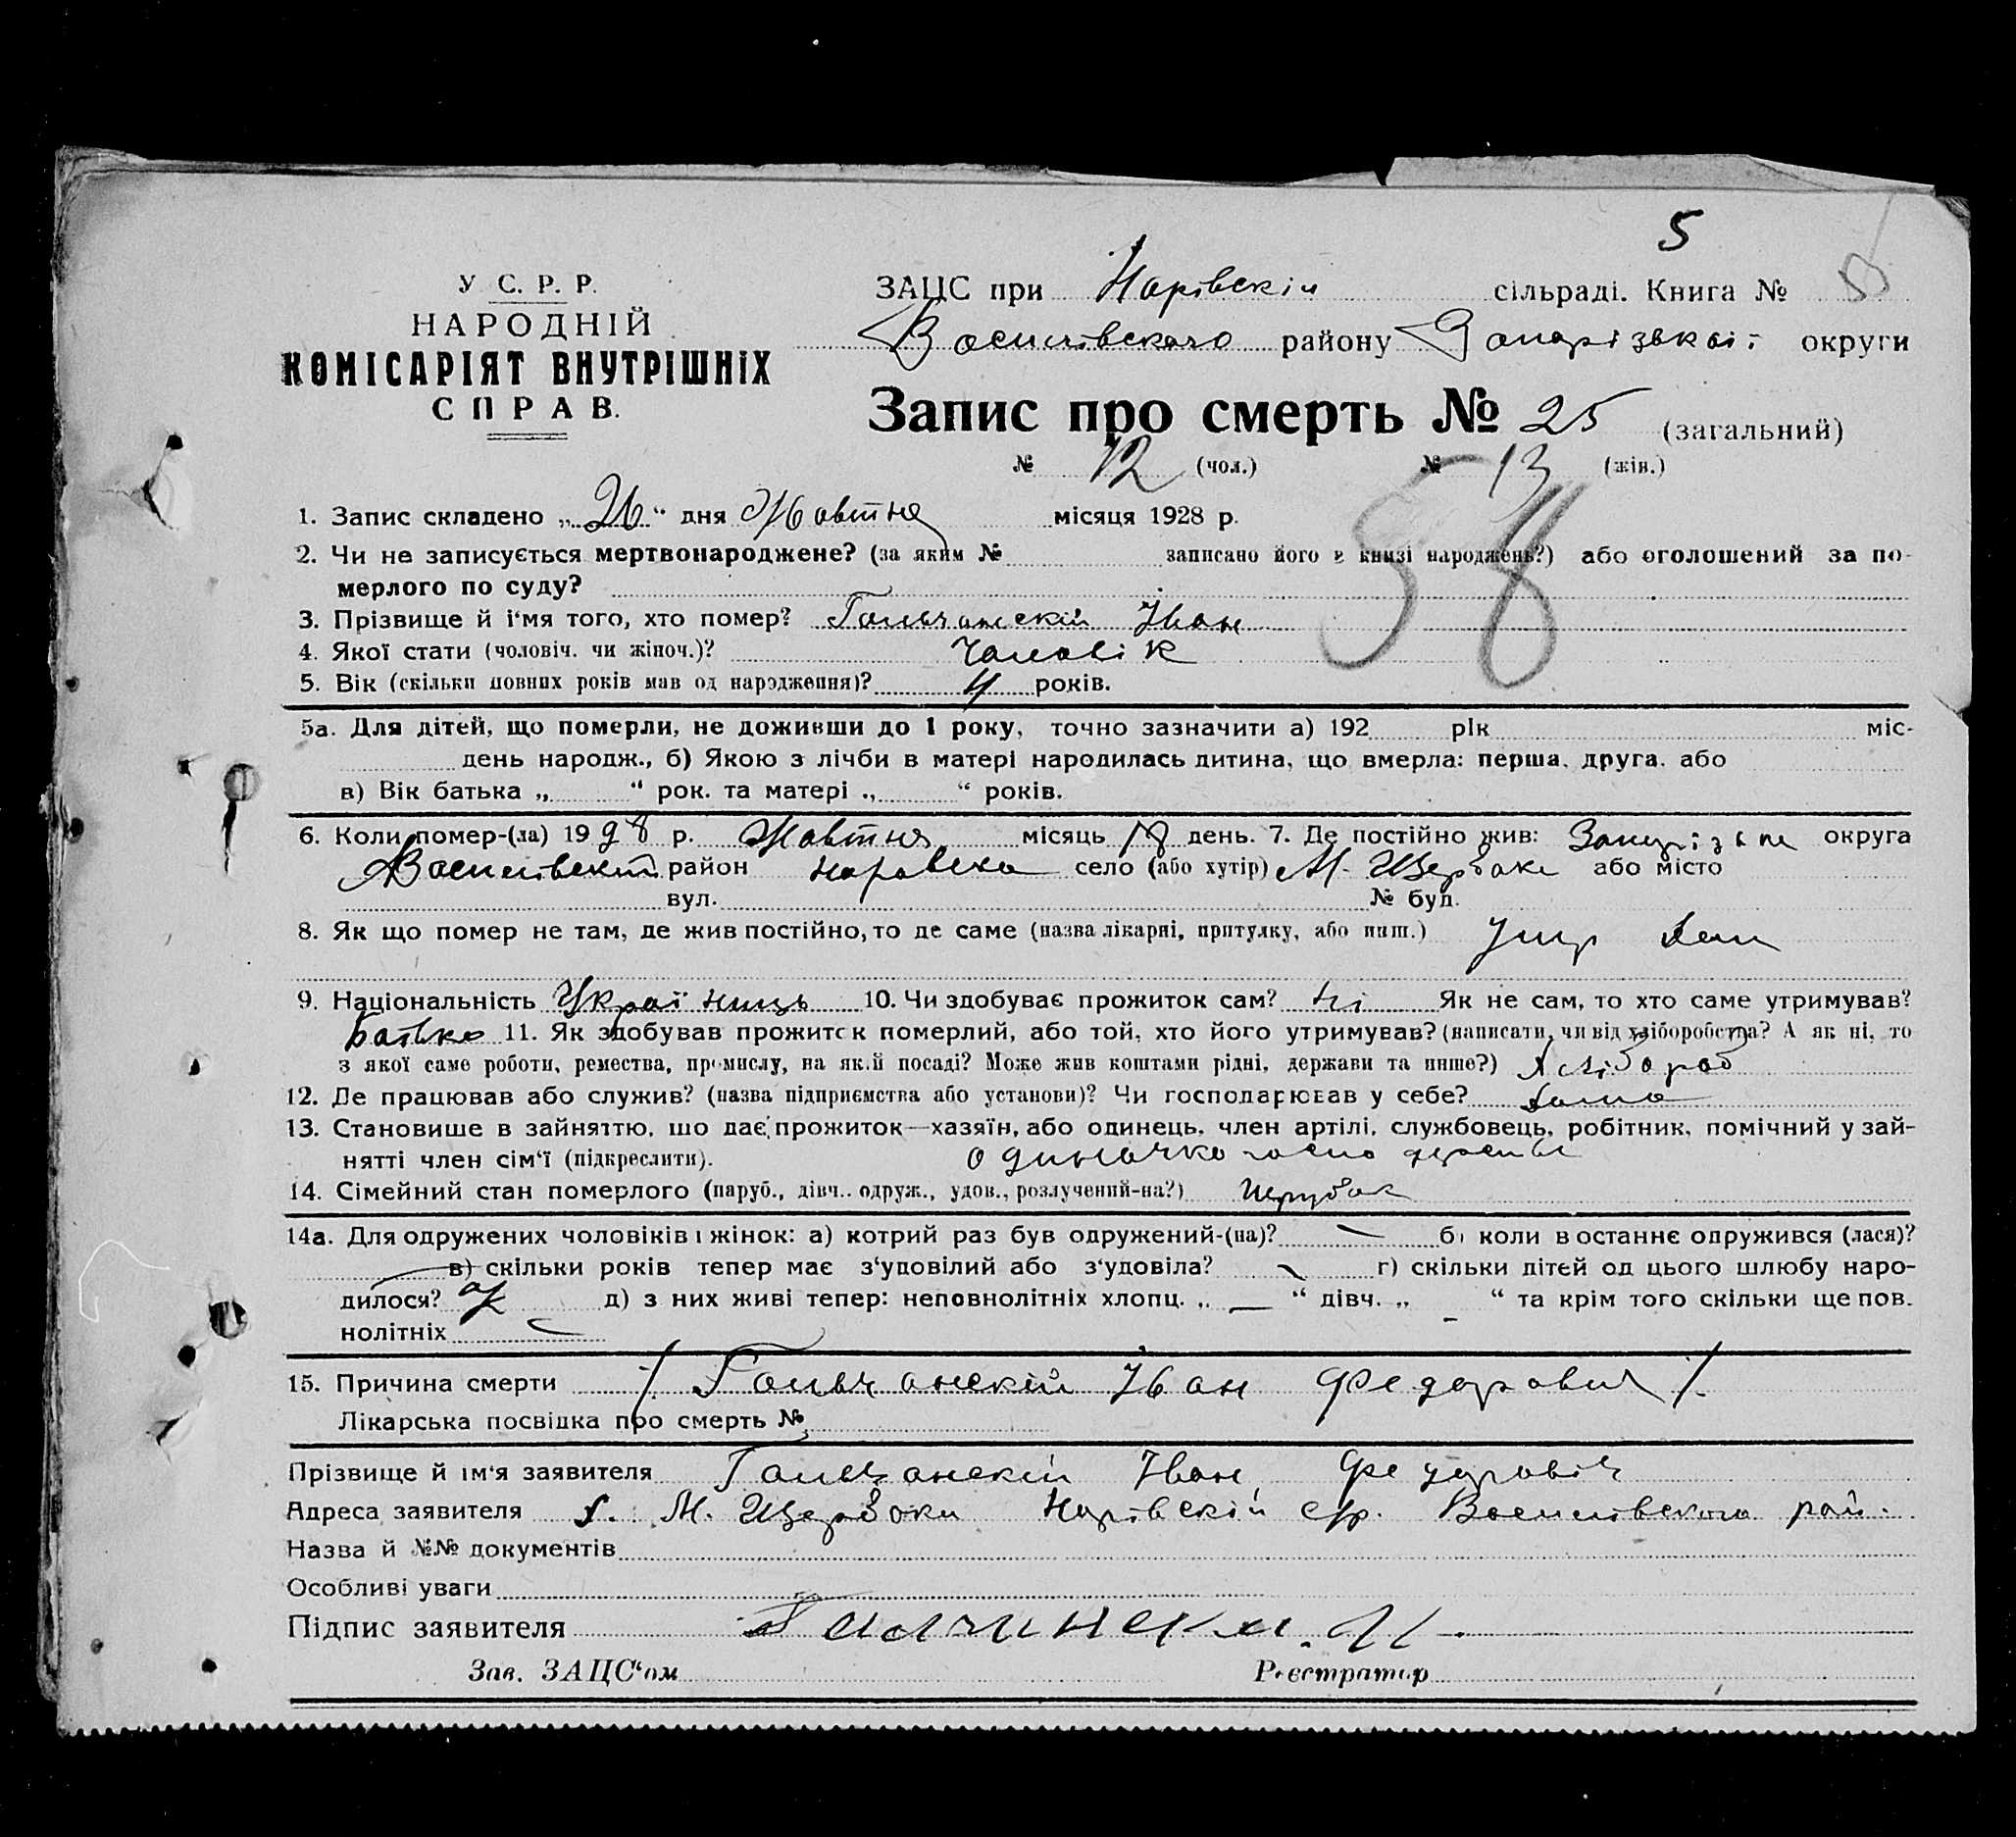 5
У С. Р. Р.
НАРОДНІЙ
КОМІСАРІЯТ ВНУТРІШНІХ
СПРАВ.
ЗАЦС при Нарівскій сільраді. Книга №
Василівского району Запорізькоі округи
Запис про смерть № 25 (загальний)
№ 12 (чол.) № 13 (жін.)
58
1. Запис складено „26“ дня Жовтня місяця 1928 р.
2. Чи не записується мертвонароджене? (за яким № записано його в книзі народжень?) або оголошений за по-
мерлого по суду?
3. Прізвище й і‘мя того, хто помер? Гальчанскій Іван
4. Якої стати (чоловіч. чи жіноч.)? Чоловік
5. Вік (скільки повних років мав од народження)? 4 років.
5а. Для дітей, що померли, не доживши до 1 року, точно зазначити а) 192 рік міс-
день народж., б) Якою з лічби в матері народилась дитина, що вмерла: перша, друга. або
в) Вік батька „ “ рок. та матері „ “ років.
6. Коли помер-(ла) 1928 р. Жовтня місяць 18 день. 7. Де постійно жив: округа
район село (або хутір) М. Щербаки або місто
вул. № буд.
8. Як що помер не там, де жив постійно, то де саме (назва лікарні, притулку, або инш.)
9. Національність Украінць 10. Чи здобуває прожиток сам? ні Як не сам, то хто саме утримував?
Батько 11. Як здобував прожиток померлий, або той, хто його утримував? (написати, чи від хліборобства? А як ні, то
з якої саме роботи, ремества, промислу, на якій посаді? Може жив коштами рідні, держави та инше?) Хлібороб
12. Де працював або служив? (назва підприємства або установи)? Чи господарював у себе? дома
13. Становище в зайняттю, що дає прожиток—хазяїн, або одинець, член артілі, службовець, робітник, помічний у зай-
нятті член сім‘ї (підкреслити).
14. Сімейний стан померлого (паруб., дівч.. одруж., удов., розлучений-на?)
14а. Для одружених чоловіків і жінок: а) котрий раз був одружений-(на)? — б) коли востаннє одружився (лася)?
в) скільки років тепер має з‘удовілий або з‘удовіла? — г) скільки дітей од цього шлюбу наро-
дилося? д) з них живі тепер: неповнолітніх хлопц. „ — “ дівч. „ - “ та крім того скільки ще пов.
нолітніх —
15. Причина смерти /. Гальчанскій Іван Федорович /.
Лікарська посвідка про смерть №
Прізвище й ім‘я заявителя Гальчанскій Іван Федорович
Адреса заявителя х. М. Щербаки Нарівскій с/р. Василівского рай.
Назва й №№ документів
Особливі уваги
Підпис заявителя
Зав. ЗАЦС‘ом Реєстратор